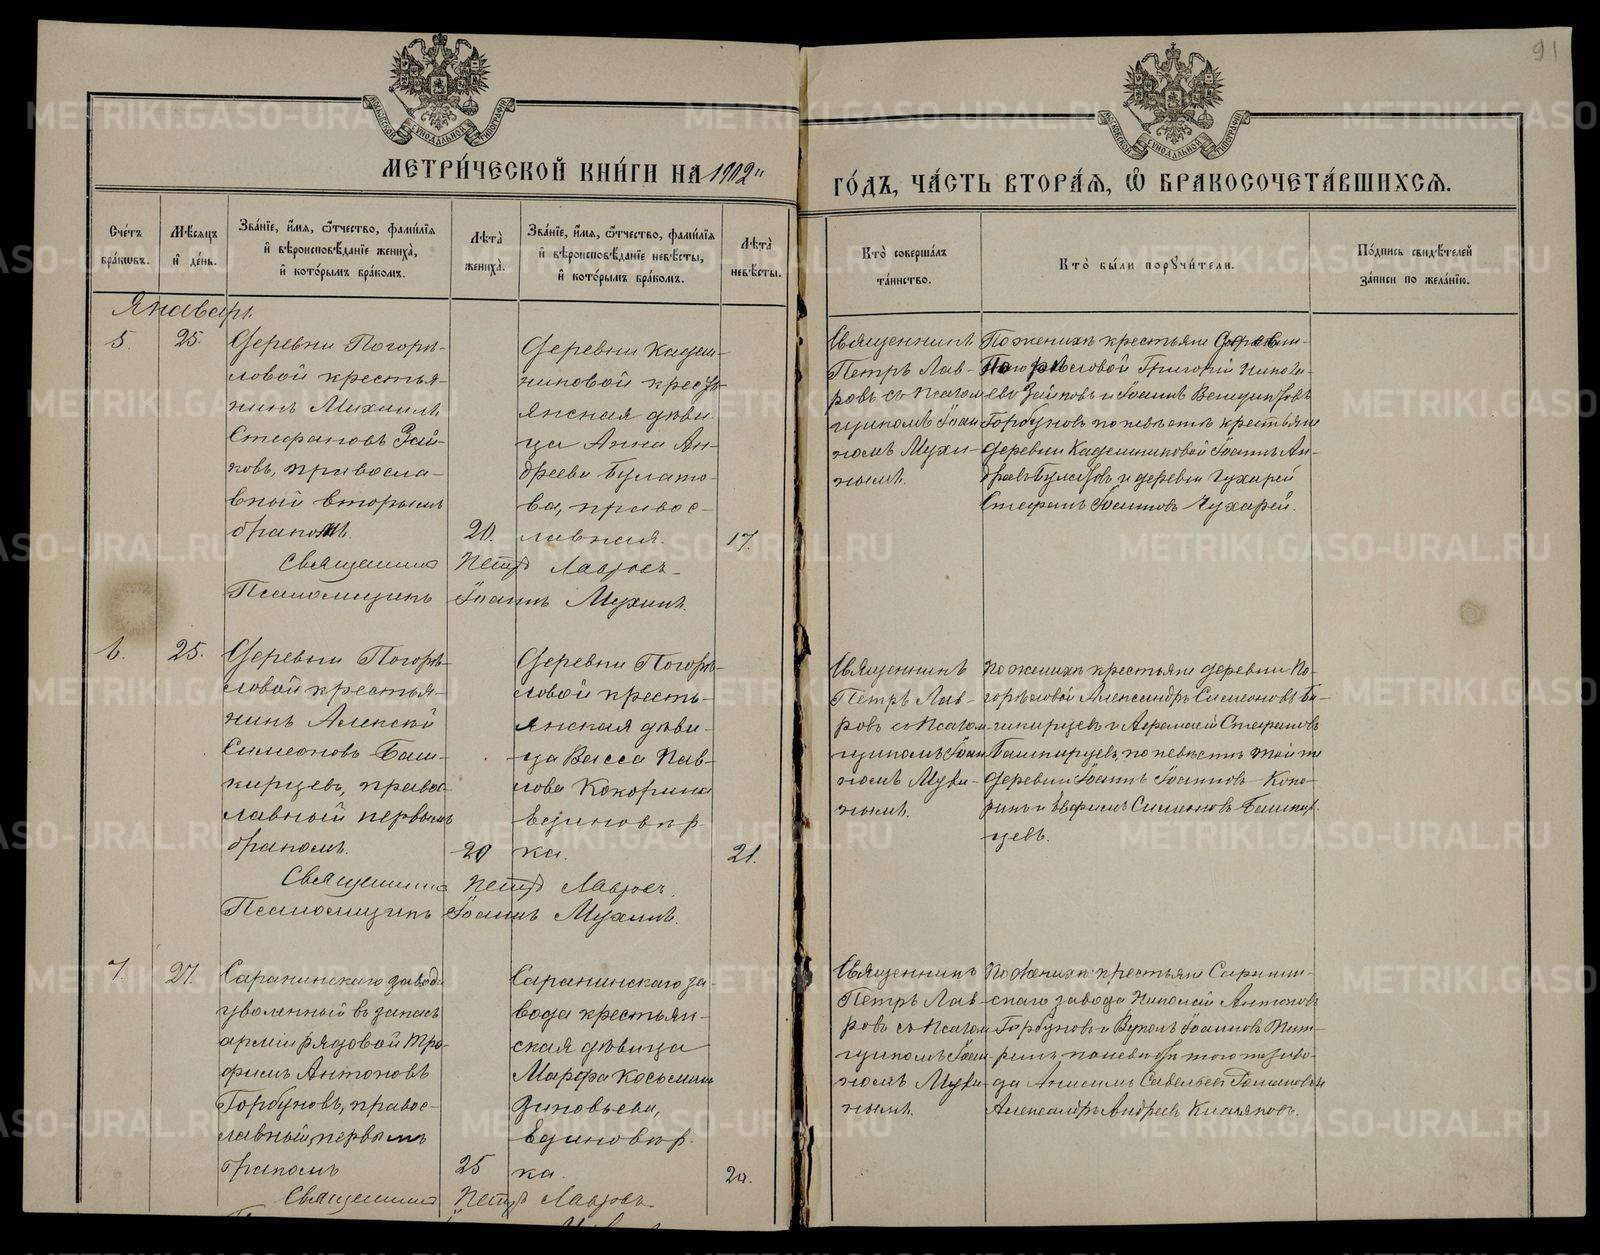 91
МЕТРИ́ЧЕСКОЙ КНИ́ГИ НА 1902"
ГО́ДЪ, ЧА́СТЬ ВТОРА́Я, Ѽ БРАКОСОЧЕТА́ВШИХСЯ.
Сче́тъ бра́ковъ.
Мѣ́сяцъ и де́нь.
Зва́нїе, и́мя, ѻ҆́тчество, фами́лїя
и҆ вѣроисповѣ́данїе жениха̀,
и҆ кото́рымъ бра́комъ.
Лѣта̀ жениха̀.
Зва́нїе, и́мя, ѻ҆́тчество, фами́лїя
и҆ вѣроисповѣ́данїе невѣ́сты,
и҆ кото́рымъ бра́комъ.
Лѣта̀ невѣ́сты.
Кто̀ соверша́лъ
та́инство.
Кто̀ бы́ли порꙋчи́тели.
По́дпись свидѣ́телей
за́писи по жела́нїю.
Январь.
5.
25.
Деревни Погорѣ-
ловой крестья-
нинъ Михаилъ
Стефановъ Зай-
ковъ, правосла-
вный вторымъ
бракомъ.
20.
Деревни Кадеш-
никовой кресть-
янская дѣви-
ца Анна Ан-
дреева Булато-
ва, правос-
лавная.
17.
Священникъ
Петръ Лав-
ровъ съ Псалом-
щикомъ Іоан-
номъ Мухи-
нымъ.
По женихѣ крестьяне деревни
Погорѣловой Григорій Никола-
евъ Зайковъ и Іоаннъ Венедиктовъ
Горбуновъ по невѣстѣ крестьяне
деревни Кадешниковой Іоаннъ Ан-
дреевъ Булатовъ и деревни Чухарей
Стефанъ Іоанновъ Чухарей.
Священникъ Петръ Лавровъ
Псаломщикъ Іоаннъ Мухинъ.
6.
25.
Деревни Погорѣ-
ловой крестья-
нинъ Алексѣй
Симеоновъ Баш-
кирцевъ, правос-
лавный первымъ
бракомъ.
20
Деревни Погорѣ-
ловой кресть-
янская дѣви-
ца Васса Пав-
лова Кокорина
единовѣр-
ка.
21.
Священникъ
Петръ Лав-
ровъ съ Псалом-
щикомъ Іоан-
номъ Мухи-
нымъ.
По женихѣ крестьяне деревни По-
горѣловой Александръ Симеоновъ Ба-
шкирцевъ и Афанасій Стефановъ
Башкирцевъ, по невѣстѣ той же
деревни Іоаннъ Іоанновъ Коко-
ринъ и Ефимъ Симеоновъ Башкир-
цевъ.
Священникъ Петръ Лавровъ.
Псаломщикъ Іоаннъ Мухинъ.
7.
27.
Саранинскаго завода
уволенный въ запасъ
арміи рядовой Тро-
фимъ Антоновъ
Горбуновъ, правос-
лавный, первымъ
бракомъ
25
Саранинскаго за-
вода крестьян-
ская дѣвица
Марфа Косьмина
Зиновьева,
единовѣр-
ка.
20.
Священникъ
Петръ Лав-
ровъ съ Псалом-
щикомъ Іоан-
номъ Мухи-
нымъ.
По женихѣ крестьяне Саранин-
скаго завода Николай Антоновъ
Горбуновъ и Вуколъ Іоанновъ
по невѣстѣ того же заво-
да Анисимъ Савельевъ
Александръ Андреевъ
Священникъ Петръ Лавровъ
METRIKI.GASO-URAL.RU